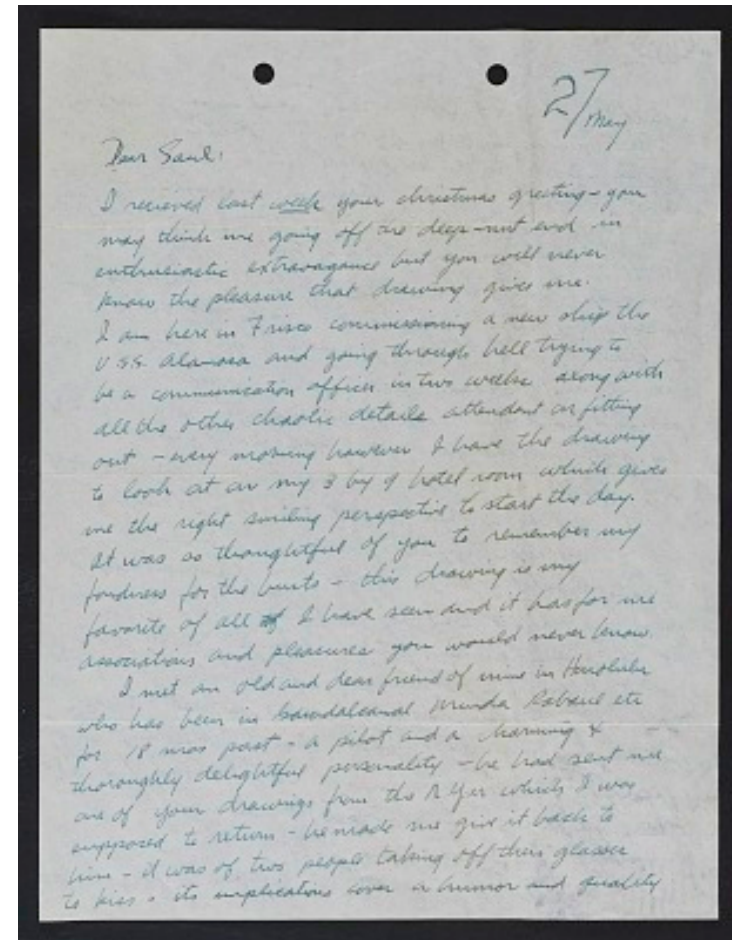 27
May
Dear Saul:
I recieved last week your christmas greeting - you
may think me going off the deep-nut end in
enthusiastic extravagance but you will never
know the pleasure that drawing gives me.
I am here in Frisco commissioning a new ship the
U.S.S. Alamosa and going through hell trying to
be a communication officer in two weeks along with
all the other chaotic details attendant on fitting
out - every morning however I have the drawing
to look at in my 3 by 9 hotel room which gives
me the right smiling perspective to start the day.
It was so thoughtful of you to remember my
fondness for the - this drawing is my
favorite of all I have seen and it has for me
associations and pleasures you would never know.
I met an old and dear friend of mine in Honolulu
who has been in Guadalcanal Munda Rabaul etc
for 18 mos past - a pilot and a charming &
thoroughly delightful personality - he had sent me
one of your drawings from the N Yer which I was
supposed to return - he made me give it back to
him - it was of two people taking off their glasses
to kiss - its implications cover a humor and quality